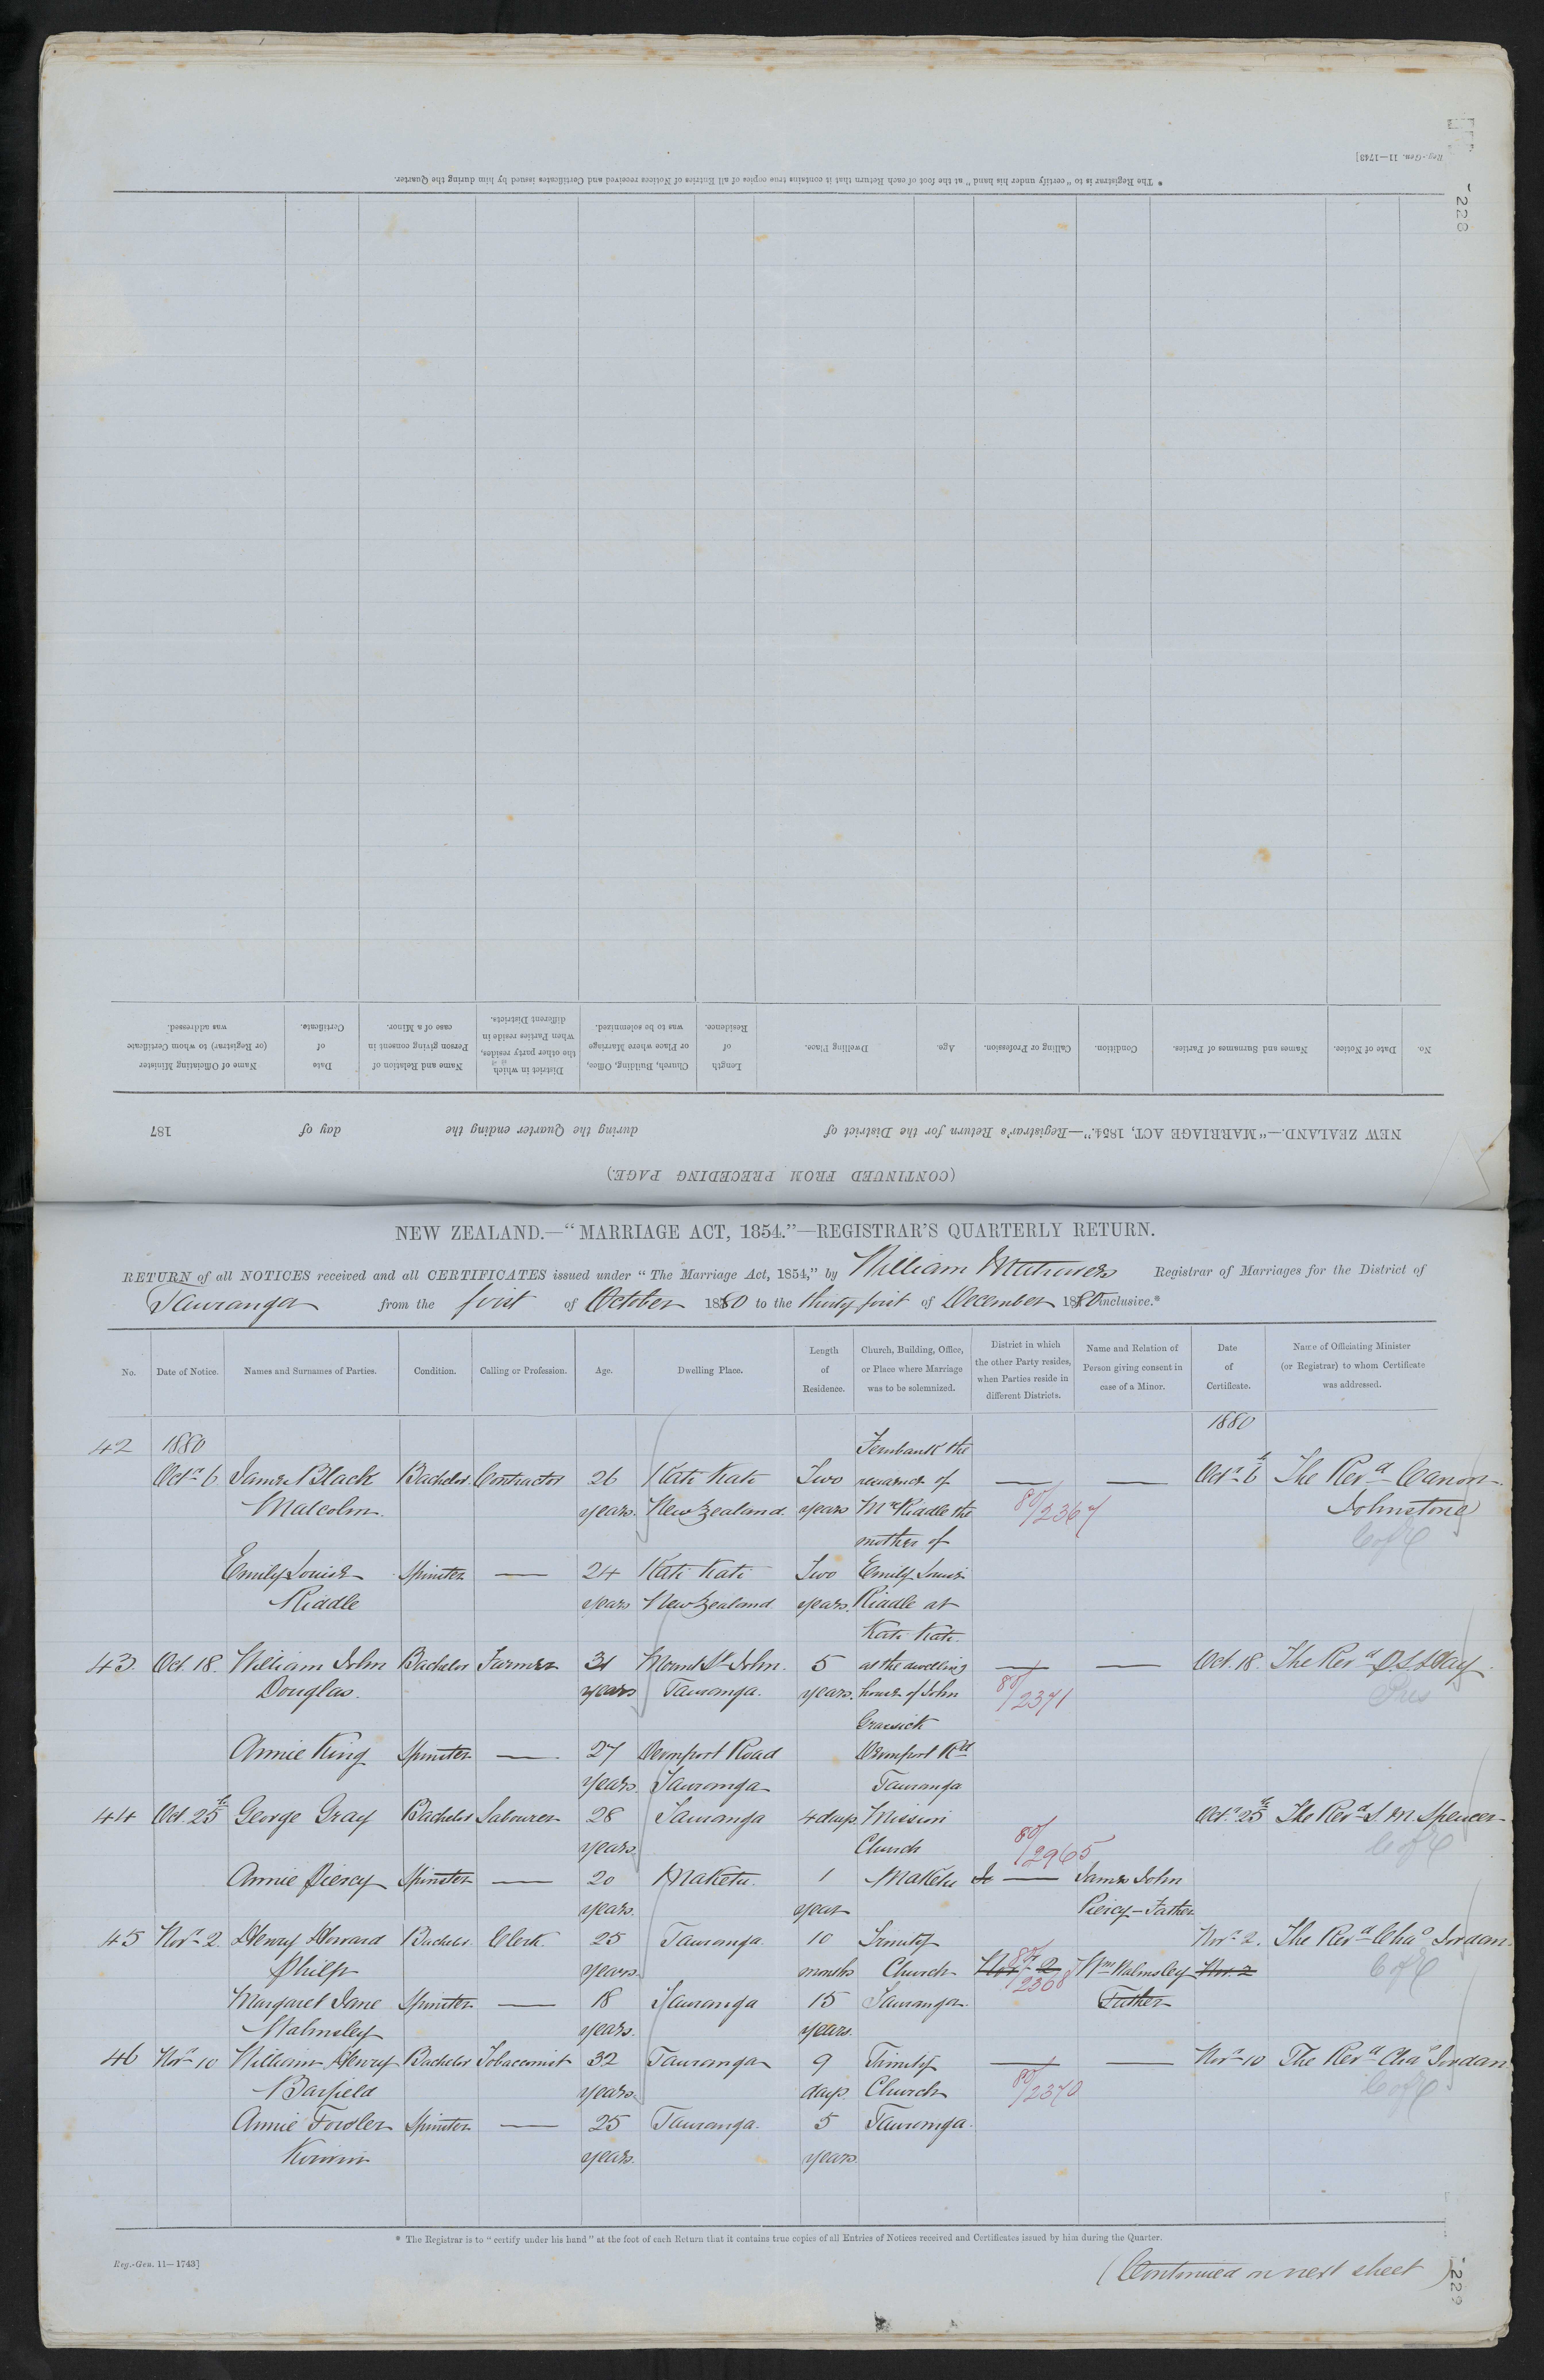 Reg.-Gen. 11—1743]
228
* The Registrar is to "certify under his hand" at the foot of each Return that it contains true copies of all Entries of Notices received and Certificates issued by him during the Quarter.
No. Date of Notice. Names and Surnames of Parties. Condition. Calling or Profession. Age. Dwelling Place. Length of Residence. Church, Building, Office, or Place where Marriage was to be solemnized. District in which the other party resides, when Parties reside in different Districts. Name and Relation of Person giving consent in case of a Minor. Date of Certificate. Name of Officiating Minister (or Registrar) to whom Certificate was addressed.
NEW ZEALAND.—"MARRIAGE ACT, 1854."—Registrar's Return for the District of during the Quarter ending the day of 187
(CONTINUED FROM PRECEDING PAGE.)
NEW ZEALAND.—"MARRIAGE ACT, 1854."—REGISTRAR'S QUARTERLY RETURN.
RETURN of all NOTICES received and all CERTIFICATES issued under "The Marriage Act, 1854," by William Registrar of Marriages for the District of
Tauranga from the first of October 1880 to the thirty first of December 1880 inclusive.*
No. Date of Notice. Names and Surnames of Parties. Condition. Calling or Profession. Age. Dwelling Place. Length of Residence. Church, Building, Office, or Place where Marriage was to be solemnized. District in which the other Party resides, when Parties reside in different Districts. Name and Relation of Person giving consent in case of a Minor. Date of Certificate. Name of Officiating Minister (or Registrar) to whom Certificate was addressed.
1880
42 1880 Fernbank the
Octr 6 James Black Bachelor Contractor 26 Kati Kati Two residence of — — Octr 6th The Revd Canon
Malcolm years New Zealand years Mrs Riddle the 80/2367 Johnstone
mother of C of E
Emily Louisa Spinster — 24 Kati Kati Two Emily Louisa
Riddle years New Zealand years. Riddle at
Kati Kati.
43. Oct. 18. William John Bachelor Farmer 31 Mount St John. 5 at the dwelling — — Oct. 18. The Revd
Douglas. years Tauranga. years. house of John 80/2371 Pres
Annie King Spinster — 27 Devonport Road Devonport Rd
years Tauranga Tauranga
44 Oct. 25th George Gray Bachelor Labourer 28 Tauranga 4 days Mission Octr 25th The Revd S. M. Spencer
years Church 80/2965 C of E
Annie Piercy Spinster — 20 Maketu. 1 Maketu — James John
years. year Piercy - Father
45 Novr 2. Henry Howard Bachelor Clerk. 25 Tauranga. 10 Trinity Novr 2. The Revd Chas Jordan
Philp years. months Church Novr 2 80/2368 Wm Walmsley Nov. 2 C of E
Margaret Jane Spinster — 18 Tauranga 15 Tauranga. Father
Walmsley years. years.
46 Novr 10 William Henry Bachelor Tobacconist 32 Tauranga 9 Trinity — — Novr 10 The Revd Chas Jordan
Barfield years. days. Church 80/2370 C of E
Annie Fowler Spinster — 25 Tauranga. 5 Tauranga.
years. years.
* The Registrar is to "certify under his hand" at the foot of each Return that it contains true copies of all Entries of Notices received and Certificates issued by him during the Quarter.
Reg.-Gen. 11—1743]
(Continued on next sheet)
229